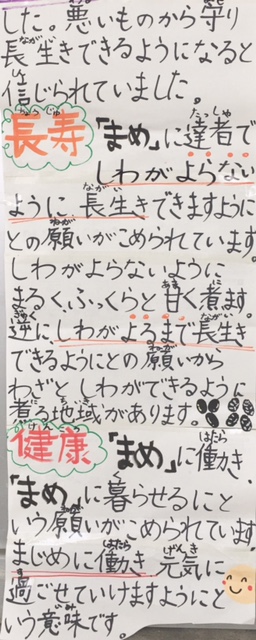 した。悪いものから守り
長生きできるようになると
信じられていました。
長寿「まめ」に達者で
しわがよらない
ように長生きできますように
との願いがこめられています。
しわがよらないように
まるく、ふっくらと甘く煮ます。
逆に、しわがよるまで長生き
できるようにとの願いから
わざとしわができるように
煮る地域があります。
健康「まめ」に働き、
「まめ」に暮らせるにと
いう願いがこめられています
まじめに働き元気に
過ごせていけますようにと
いう意味です。